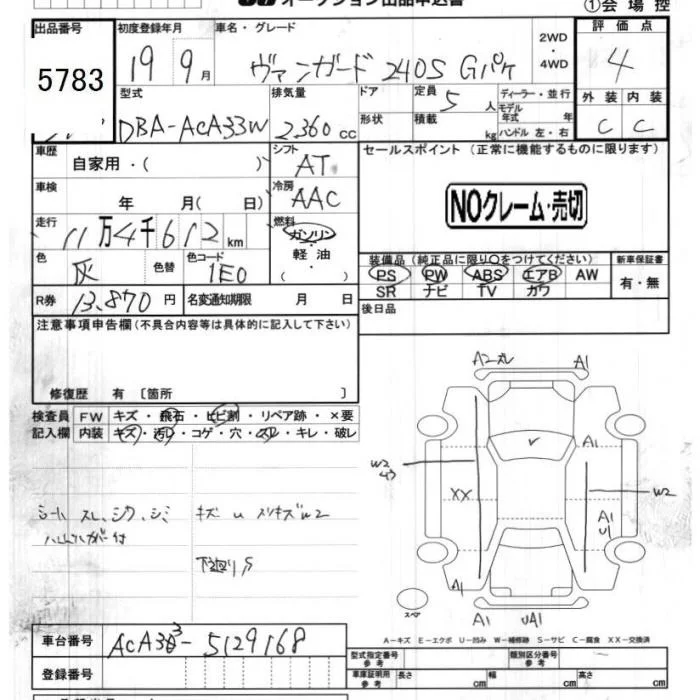 オークション出品申込書
①会場控
出品番号
5783
初度登録年月
19 9月
車名・グレード
ヴァンガード 240S Gパケ
2WD
・
4WD
評価点
4
外装 内装
C C
型式
DBA-ACA33W
排気量
2360 cc
ドア
形状
定員 5 人
積載 kg
ディーラー・並行
モデル年式 年
ハンドル 左・右
車歴
自家用・( )
シフト
AT
セールスポイント (正常に機能するものに限ります)
NOクレーム・売切
車検
年 月( 日)
冷房
AAC
走行
11万4千612km
燃料
ガソリン
・
軽油
・
( )
色
灰
色替
色コード
1E0
装備品(純正品に限り○をつけてください)
PS PW ABS エアB AW
SR ナビ TV カワ
新車保証書
有・無
R券
13,870円
名変通知期限 月 日
後日品
注意事項申告欄(不具合内容等は具体的に記入して下さい)
修復歴 有 〔箇所 〕
検査員
記入欄
FW キズ・飛石・ヒビ割・リペア跡・×要
内装 キズ・汚レ・コゲ・穴・スレ・キレ・破レ
シート スレ、シワ、シミ
ハンドルカバー付
キズ U スリキズ W2
下廻りS
A2スレ A1
A1
W2
XX
W2
A1
U1
A1
スペア
A1 UA1
A-キズ E-エクボ U-凹み W-補修跡 S-サビ C-腐食 XX-交換済
車台番号
ACA33-5129168
登録番号
型式指定番号
参考
類別区分番号
参考
車庫証明用
参考
長さ cm
幅 cm
高さ cm